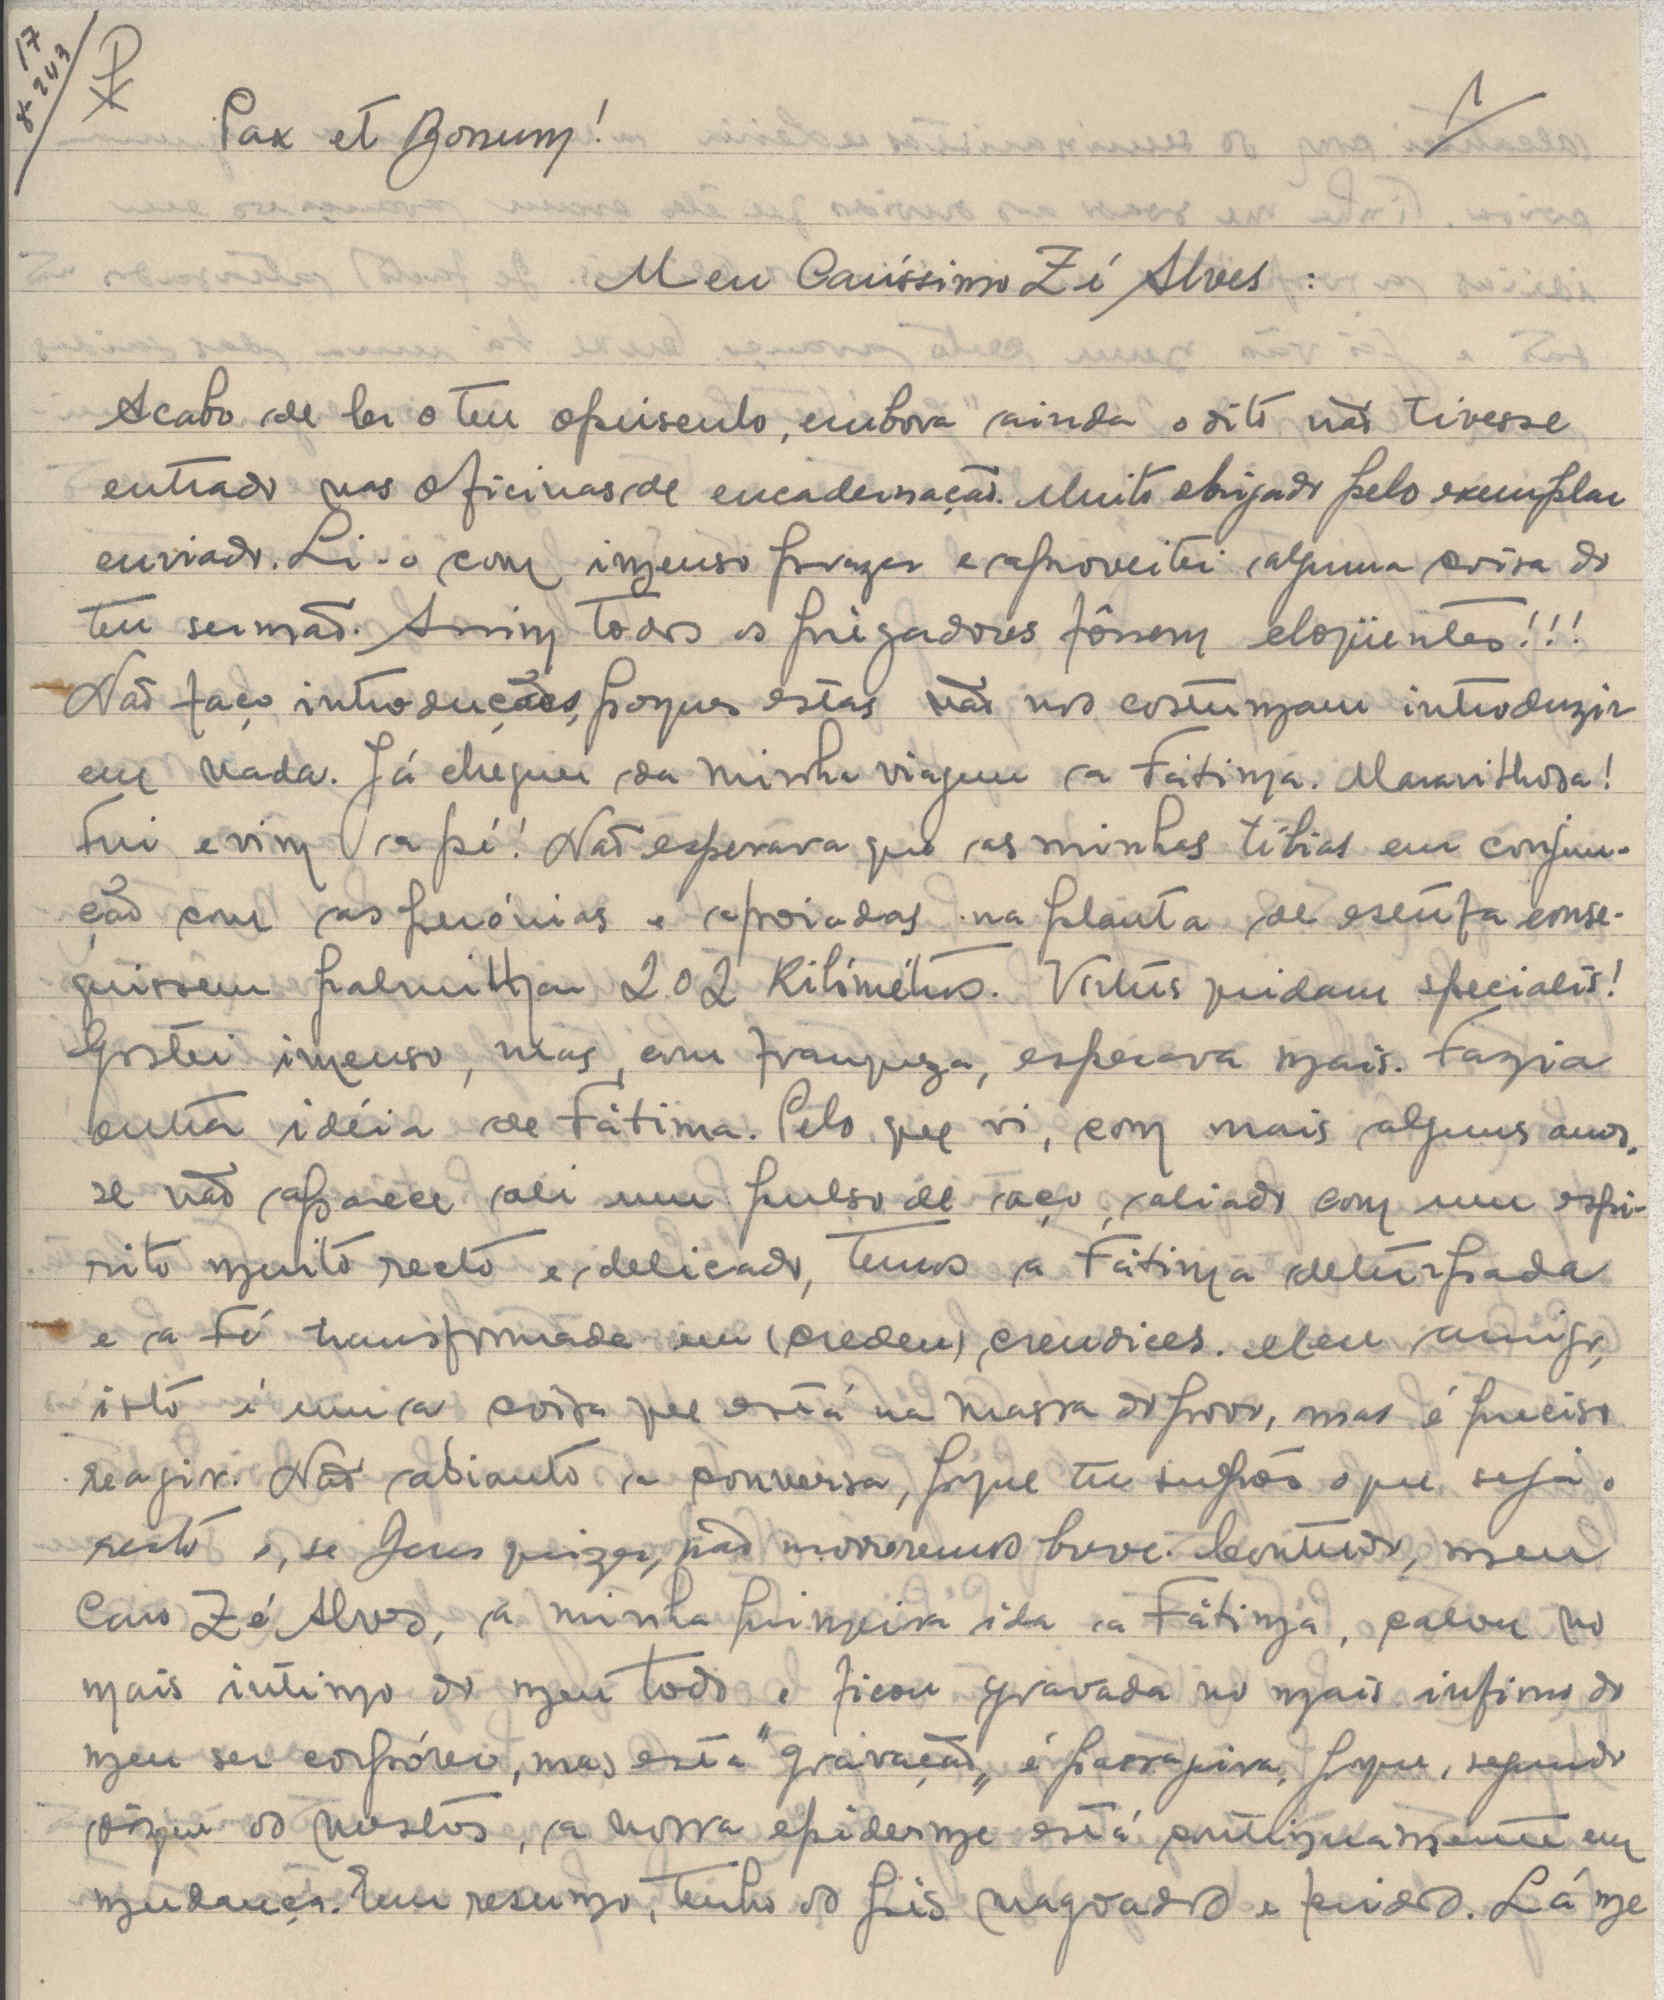 17
8-243
Pax et Bonum!
1
Meu Caríssimo Zé Alves:
Acabo de ler o teu opúsculo, embora ainda o dito não tivesse
entrado nas oficinas de encadernação. Muito obrigado pelo exemplar
enviado. Li-o com imenso prazer e aproveitei alguma coisa do
teu sermão. Assim todos os prègadores fôssem eloqüentes!!!
Não faço introduções, porque estas não nos costumam introduzir
em nada. Já cheguei da minha viagem a Fátima. Maravilhosa!
Fui e vim a pé! Não esperava que as minhas tíbias em conjun-
ção com as perónias e apoiadas na planta de esta conse-
guissem palmilhar 202 Kilómetros. Virtus quidam specialis!
Gostei imenso, mas, com franqueza, esperava mais. Fazia
outra idéia de Fátima. Pelo que vi, com mais alguns anos,
se não aparece ali um pulso de aço, aliado com um espí-
rito muito recto e delicado, temos a Fátima deturpada
e a Fé transformada em (creden) crendices. Meu amigo,
isto é uma coisa que está na massa do povo, mas é preciso
reagir. Não adianto a conversa, porque tu supões o que seja o
resto e, se Jesus quizer, não morreremos breve. Contudo, meu
Caro Zé Alves, a minha primeira ida a Fátima, calou no
mais íntimo do meu todo e ficou gravada no mais ínfimo do
meu ser corpóreo, mas esta "gravação" é passageira, porque, segundo
dizem os mestres, a nossa epiderme está continuamente em
mudança. Em resumo, tenho os pés magoados e feridos. Lá me